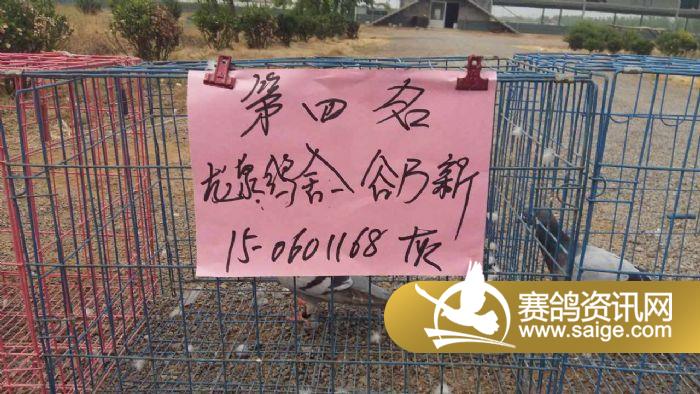 第四名
龙泉鸽舍—谷乃新
15-0601168 灰
赛鸽资讯网
www.saige.com